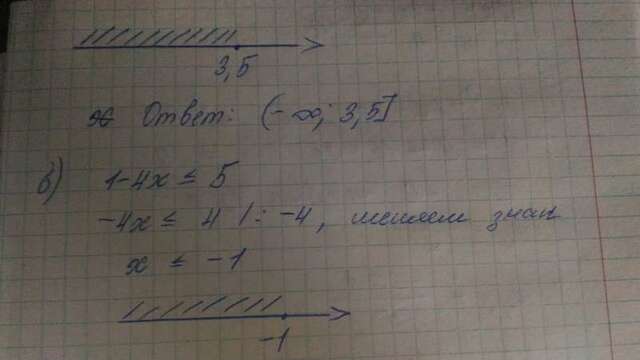 3,5
Ответ: (-∞; 3,5]
в) 1-4x ≤ 5
-4x ≤ 4 |: -4, меняем знак
x ≤ -1
-1